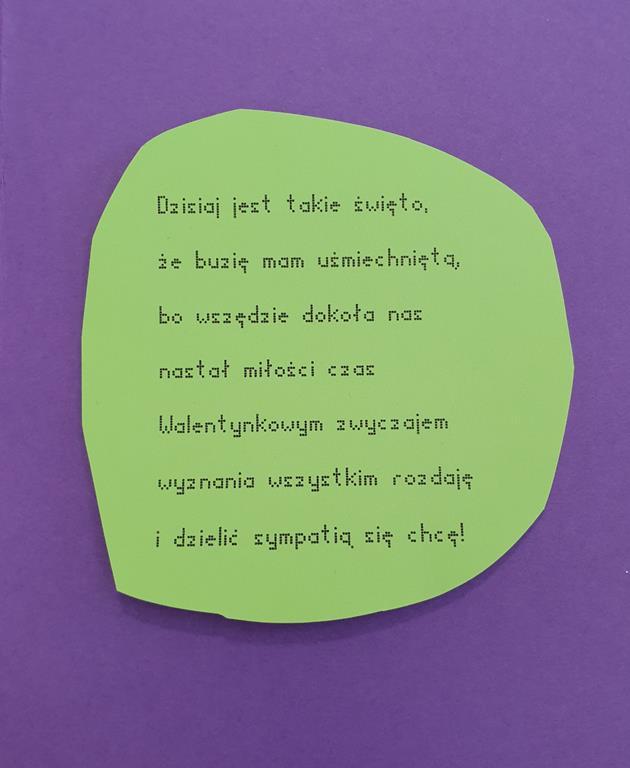 Dzisiaj jest takie święto,
że buzię mam uśmiechniętą,
bo wszędzie dokoła nas
nastał miłości czas
Walentynkowym zwyczajem
wyznania wszystkim rozdaję
i dzielić sympatią się chcę!